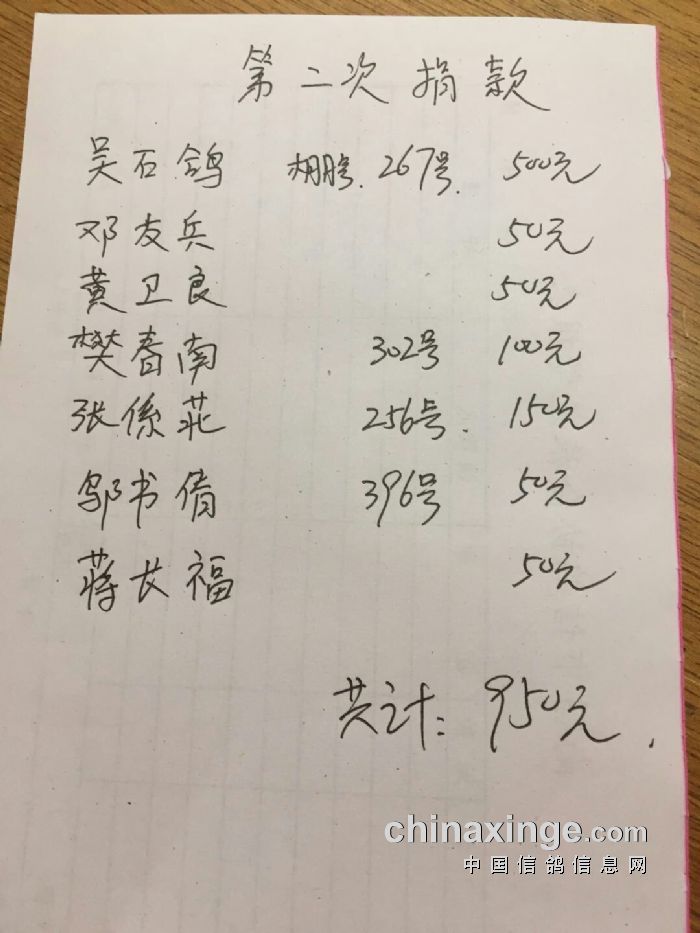 第二次捐款
吴石鸽 棚号.267号. 500元
邓友兵 50元
黄卫良 50元
樊春南 302号 100元
张係菲 256号. 150元
邬书倩 396号 50元
蒋长福 50元
共计: 950元.
chinaxinge.com
中国信鸽信息网